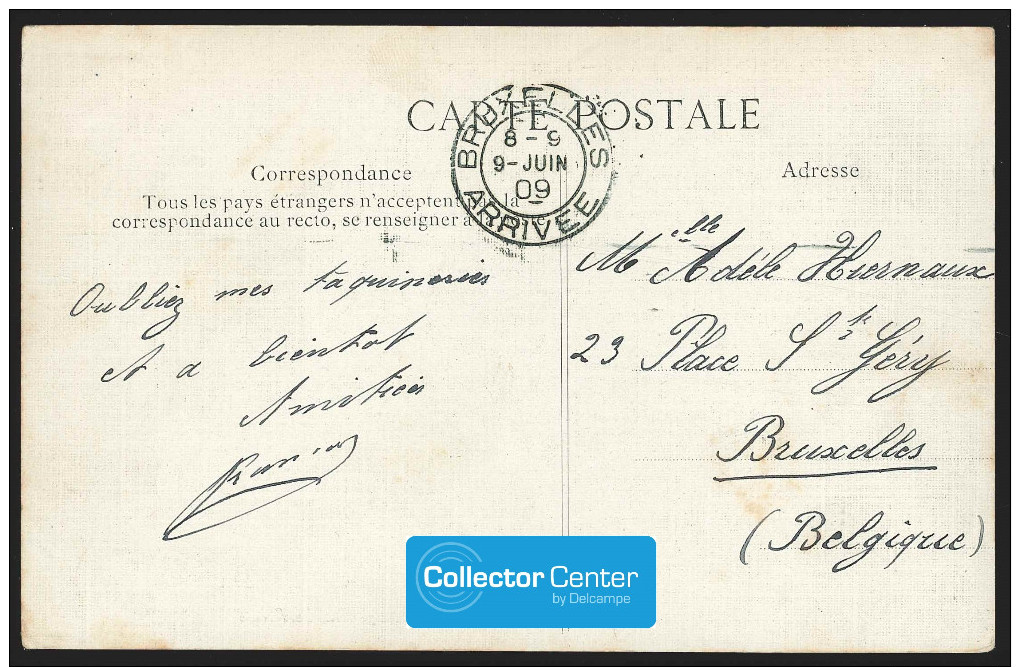 CARTE POSTALE
BRUXELLES
8-9
9-JUIN
09
ARRIVÉE
Correspondance
Tous les pays étrangers n'acceptent la
correspondance au recto, se renseigner à la Poste
Oubliez mes taquineries
et a bientot
Amitiés
Adresse
Melle Adèle Hiernaux
23 Place St Géry
Bruxelles
(Belgique)
Collector Center
by Delcampe